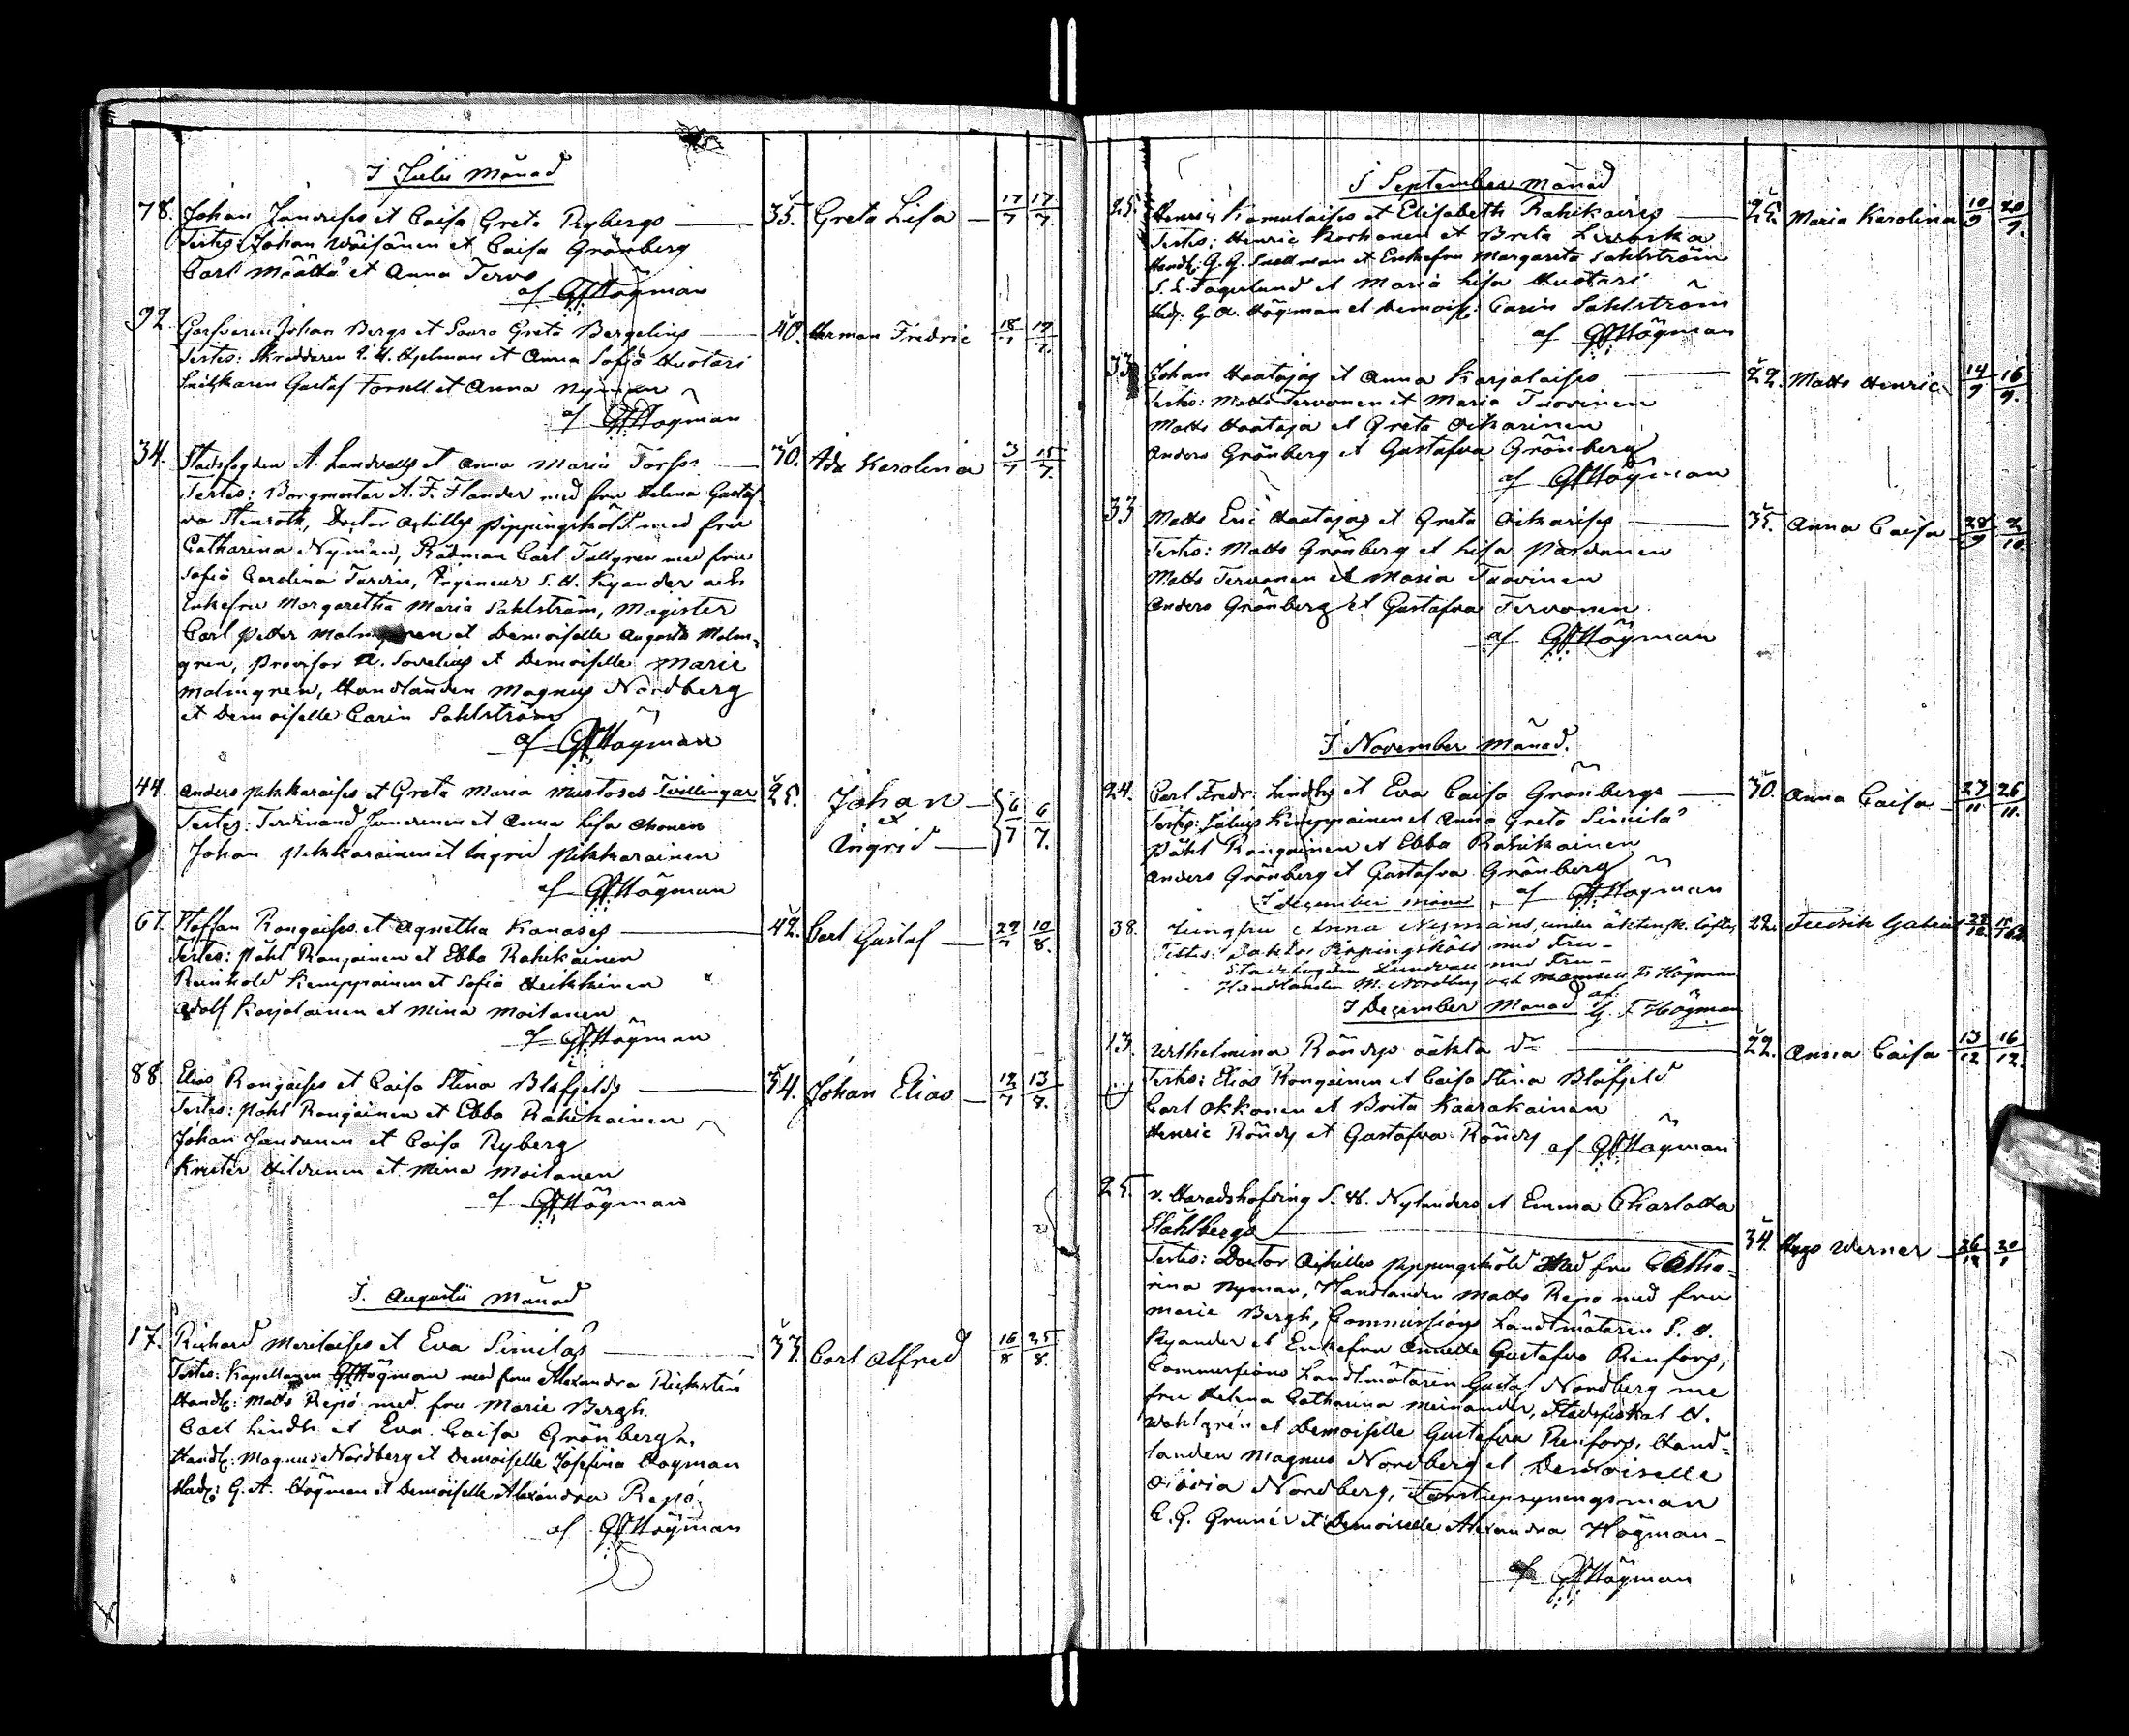 I Julii Månad
78. Johan Jandreses et Caisa Greta Rybergs 35. Greta Lisa 17/7 17/7.
Testes: Johan Wäisänen et Caisa Grönberg
Carl Määttä et Anna Tervo
af GFHögman
92. Johan Bergs et Saara Greta Bergelius 40. Herman Fredric 18/7 19/7.
Testes: Skreddaren Hjelman et Anna Sofia Huotari
Gustaf Forsell et Anna Nyman
af GFHögman
34. Stadsfogden A. Landvalls et Anna Maria 30. Ida Karolina 3/7 15/7.
Testes: Borgmestar A. F. Flander med fru Helena Gustaf-
va Stenroth, Doctor Achilles Pippingsköld med fru
Catharina Nyman, Rådman Carl Tallgren med fru
Sofia Carolina, Ingenieur S. H. Kyander och
Enkefru Margaretha Maria Sahlström, Magister
Carl Petter Malmgren et Demoiselle Augusta Malm-
gren, Provisor A. Sovelius et Demoiselle Marie
Malmgren, Handlanden Magnus Nordberg
et Demoiselle Carin Sahlström
af GFHögman
44. Anders Pikkaraises et Greta Maria Mustoses Tvillingar 25. Johan
et
Ingrid 6/7 6/7.
Testes: Ferdinand Junerinen et Anna Lisa Ahonen
Johan Pikkarainen et Ingrid Pikkarainen
af GFHögman
67. Staffan Rongaises et Agnetha Kanases 42. Carl Gustaf 29/7 10/8.
Testes: Påhl Rongainen et Ebba Rahikainen
Reinhold Kemppainen et Sofia Heikkinen
Adolf Karjalainen et Mina Moilanen
af GFHögman
88. Elias Rongaises et Caisa Stina Blåfjelds 34. Johan Elias 12/7 13/8.
Testes: Påhl Rongainen et Ebba Rahikainen
Johan Jandunen et Caisa Ryberg
Krister Hildunen et Mina Moilanen
af GFHögman
I. Augustii Månad
17. Richard Merilaises et Eva Similas 33. Carl Alfred 16/8 25/8.
Testes: Kapellanen GFHögman med fru Alexandra
Handl: Matts Repo med fru Marie Bergh.
Carl Lindh et Eva Caisa Grönbergh.
Handl: Magnus Nordberg et Demoiselle Josefina Hogman
G. A. Högman et Demoiselle Alexandra Repo
af GFHögman
I September Månad
25. Henric Kamulaises et Elisabeth Rahikaises 25. Maria Karolina 10/9 20/9.
Testes: Henric Korhonen et Breta
Handl: G. G. Snellman et Enkefru Margareta Sahlström
S. L. Fagerlund et Maria Lisa Huotari
G. A. Högman et Demoise: Carin Sahlström
af GFHögman
33 Johan Haatajas et Anna Karjalaises 22. Matts Henric 14/9 16/9.
Testes: Matts Tervonen et Maria Tuovinen
Matts Haataja et Greta Oikarinen
Anders Grönberg et Gustafva Grönberg
af GFHögman
33 Matts Eric Haatajas et Greta Oikarises 35. Anna Caisa 28/9 2/10
Testes: Matts Grönberg et Lisa Pardanen
Matts Tervonen et Maria Tuovinen
Anders Grönberg et Gustafva Tervonen
af GFHögman
I November Månad.
24. Carl Fredr: Lindhs et Eva Caisa Grönbergs 30. Anna Caisa 23/11 26/11.
Testes: Julius Kemppainen et Anna Greta Similä
Påhl Rongainen et Ebba Rahikainen
Anders Grönberg et Gustafva Grönberg
I december månad af GFHögman
38. Jungfru Anna Nymans, under äktensk. löfte 22. Fredrik Gabriel
Testes: Doktor Pippingsköld med Fru
Stadsfogden Lundvall med Fru
Handlanden M. Nordberg och Mamsell Högman
I December Månad af G. F. Högman
13. Wilhelmina Röndys oäkta dr 22. Anna Caisa 13/12 16/12.
Testes: Elias Rongainen et Caisa Stina Blåfjeld
Carl Okkonen et Brita Kaarakainen
Henric Röndy et Gustafva Röndy af GFHögman
25. v. Häradshöfding S. W. Nylanders et Emma Charlotta
Ståhlbergs 34. Hugo Werner 26/12 20/1
Testes: Doctor Achilles Pippingsköld Med fru Catha-
rina Nyman, Handlanden Matts Repo med fru
Marie Bergh, Commissions Landtmätaren S. H.
Kyander et Enkefru Annette Gustafva Renfors,
Commissions Landtmätaren Gustaf Nordberg me
fru Helena Catharina Meinander, Stadsfiskal A.
Wahlgrén et Demoiselle Gustafva Renfors, Hand-
landen Magnus Nordberg et Demoiselle
Olivia Nordberg, Forstuppsyningsman
C. G. Grunér et Demoiselle Alexandra Högman
af GFHögman